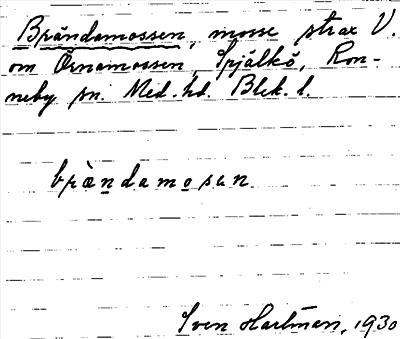 Brändamossen, mosse strax V.
om Örnamossen, Spjälkö, Ron-
neby sn. Med. hd. Blek. l.
brändamosen.
Sven Hartman, 1930